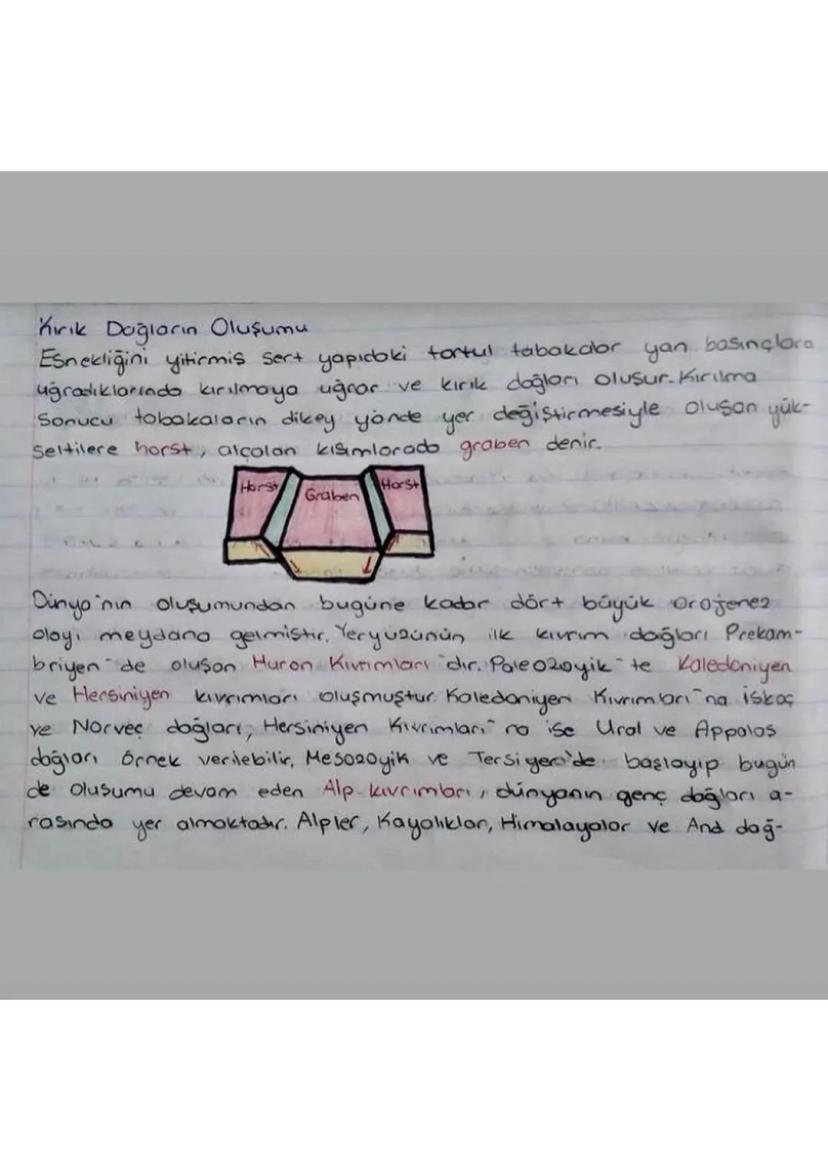 Kırık Dağların Oluşumu
Esnekliğini yitirmiş sert yapıdaki tortul tabakalar yan basınçlara
uğradıklarında kırılmaya uğrar ve kırık dağları oluşur. Kırılma
sonucu tabakaların dikey yönde yer değiştirmesiyle oluşan yük-
seltilere horst, alçalan kısımlarada graben denir.
Horst Graben Horst
Dünya'nın oluşumundan bugüne kadar dört büyük orojenez
olayı meydana gelmiştir. Yeryüzünün ilk kıvrım dağları Prekam-
briyen'de oluşan Huron Kıvrımları'dır. Paleozoyik'te Kaledoniyen
ve Hersiniyen kıvrımları oluşmuştur. Kaledoniyen Kıvrımları'na İskoç
ve Norveç dağları, Hersiniyen Kıvrımları'na ise Ural ve Appalaş
dağları örnek verilebilir. Mesozoyik ve Tersiyer'de başlayıp bugün
de oluşumu devam eden Alp kıvrımları, dünyanın genç dağları a-
rasında yer almaktadır. Alpler, Kayalıklar, Himalayalar ve And dağ-